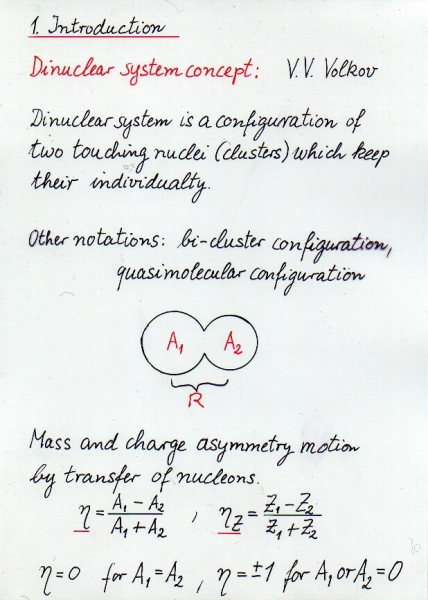 1. Introduction
Dinuclear system concept: V.V. Volkov
Dinuclear system is a configuration of
two touching nuclei (clusters) which keep
their individualty.
Other notations: bi-cluster configuration,
quasimolecular configuration
A₁ A₂
R
Mass and charge asymmetry motion
by transfer of nucleons.
η = (A₁ - A₂)/(A₁ + A₂) , η_Z = (Z₁ - Z₂)/(Z₁ + Z₂)
η=0 for A₁=A₂ , η=±1 for A₁ or A₂=0